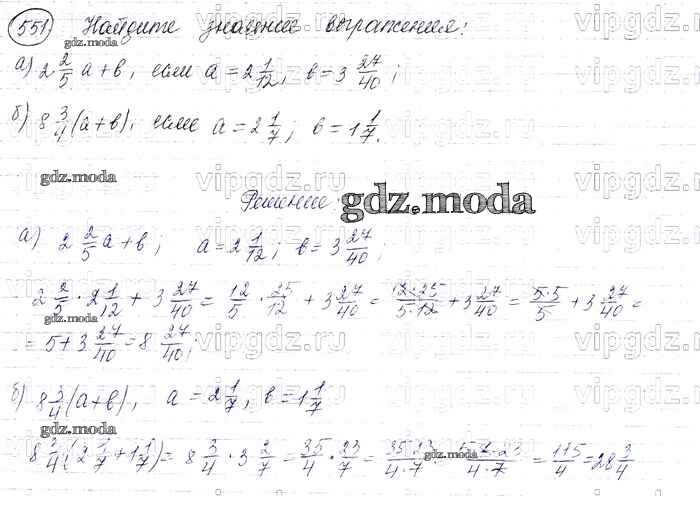 551 Найдите значение выражения:
а) 2 2/5 a + b, если a = 2 1/12, b = 3 27/40;
б) 8 3/4 (a + b), если a = 2 1/7; b = 1 1/7.
Решение:
а) 2 2/5 a + b; a = 2 1/12; b = 3 27/40;
2 2/5 · 2 1/12 + 3 27/40 = 12/5 · 25/12 + 3 27/40 = 12·25/5·12 + 3 27/40 = 5·5/5 + 3 27/40 =
= 5 + 3 27/40 = 8 27/40;
б) 8 3/4 (a + b), a = 2 1/7, b = 1 1/7
8 3/4 (2 1/7 + 1 1/7) = 8 3/4 · 3 2/7 = 35/4 · 23/7 = 35·23/4·7 = 5·7·23/4·7 = 115/4 = 28 3/4
gdz.moda
vipgdz.ru